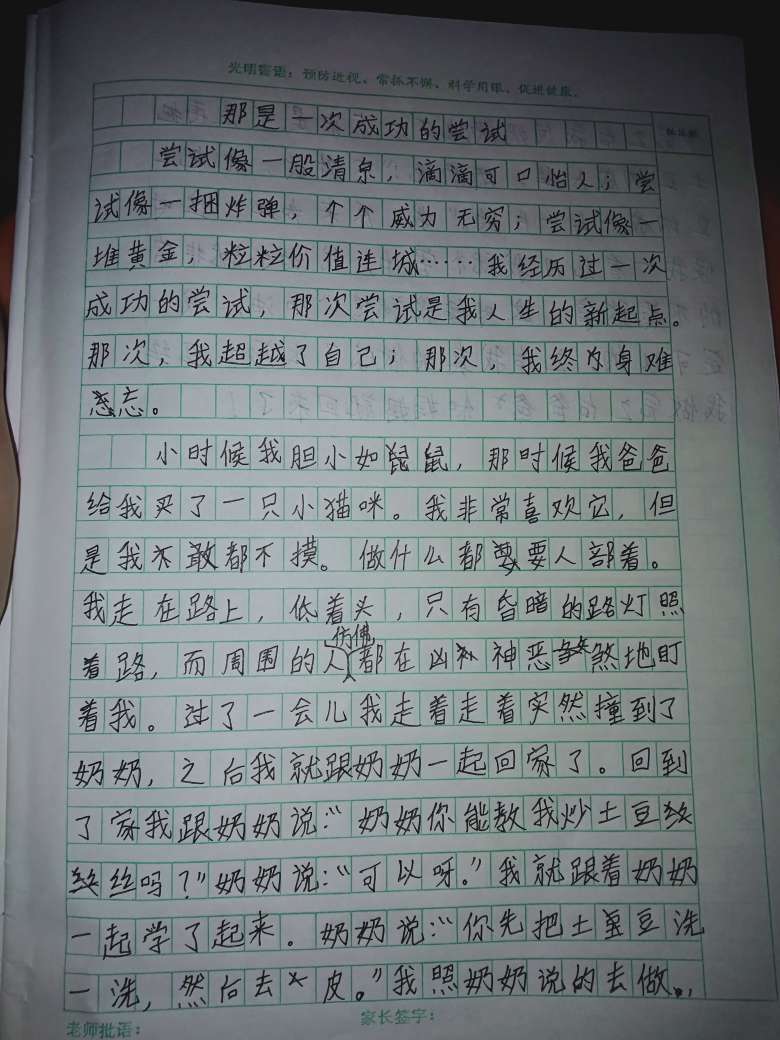 光明寄语：预防近视、常抓不懈、科学用眼、促进健康。
那是一次成功的尝试
尝试像一股清泉，滴滴可口怡人；尝
试像一捆炸弹，个个威力无穷；尝试像一
堆黄金，粒粒价值连城……我经历过一次
成功的尝试，那次尝试是我人生的新起点。
那次，我超越了自己；那次，我终尔身难
忘。
小时候我胆小如鼠，那时候我爸爸
给我买了一只小猫咪。我非常喜欢它，但
是我不敢都不摸。做什么都要人部着。
我走在路上，低着头，只有昏暗的路灯照
着路，而周围的人仿佛都在凶神恶煞地盯
着我。过了一会儿我走着走着突然撞到了
奶奶，之后我就跟奶奶一起回家了。回到
了家我跟奶奶说：“奶奶你能教我炒土豆
丝吗？”奶奶说：“可以呀。”我就跟着奶奶
一起学了起来。奶奶说：“你先把土豆洗
一洗，然后去皮。”我照奶奶说的去做.，
老师批语：
家长签字：